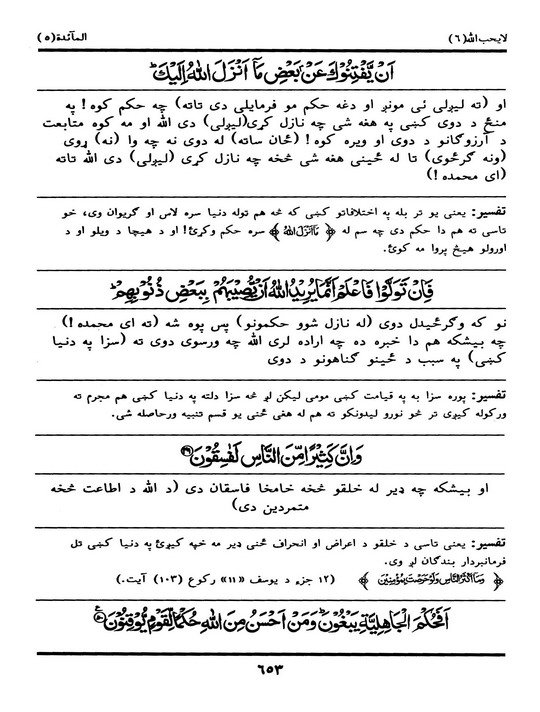 لايحب الله (٦) المآئدة (٥)
اَنْ يَّفْتِنُوْكَ عَنْۢ بَعْضِ مَاۤ اَنْزَلَ اللّٰهُ اِلَيْكَ ؕ
او (ته ليږلی ئی مونږ او دغه حکم مو فرمایلی دی تاته) چه حکم کوه! په
منځ د دوی کښی په هغه شی چه نازل کړی(لیږلی) دی الله او مه کوه متابعت
د آرزوگانو د دوی او ویره کوه! (ځان ساته) له دوی نه چه وا (نه) ړوی
(ونه گرځوی) تا له ځینی هغه شی څخه چه نازل کړی (لیږلی) دی الله تاته
(ای محمده!)
تفسیر: یعنی یو تر بله په اختلافاتو کښی که څه هم توله دنیا سره لاس او گریوان وی، خو
تاسی ته هم دا حکم دی چه سم له ﴿ مَاۤ اَنْزَلَ اللّٰهُ ﴾ سره حکم وکړئ! او د هیچا د ویلو او د
اورولو هیڅ پروا مه کوئ.
فَاِنْ تَوَلَّوْا فَاعْلَمْ اَنَّمَا يُرِيْدُ اللّٰهُ اَنْ يُّصِيْبَهُمْ بِبَعْضِ ذُنُوْبِهِمْ ؕ
نو که وگرځیدل دوی (له نازل شوو حکمونو) پس پوه شه (ته ای محمده!)
چه بیشکه هم دا خبره ده چه اراده لری الله چه ورسوی دوی ته (سزا په دنیا
کښی) په سبب د ځینو گناهونو د دوی
تفسیر: پوره سزا به په قیامت کښی مومی لیکن لږ څه سزا دلته په دنیا کښی هم مجرم ته
ورکوله کیږی تر څو نورو لیدونکو ته هم له هغی ځنی یو قسم تنبیه ورحاصله شی.
وَاِنَّ كَثِيْرًا مِّنَ النَّاسِ لَفٰسِقُوْنَ ﴿۴۹﴾
او بیشکه چه ډیر له خلقو څخه خامخا فاسقان دی (د الله د اطاعت څخه
متمردین دی)
تفسیر: یعنی تاسی د خلقو د اعراض او انحراف ځنی ډیر مه خپه کیږئ په دنیا کښی تل
فرمانبردار بندگان لږ وی.
﴿ وَمَاۤ اَكْثَرُ النَّاسِ وَلَوْ حَرَصْتَ بِمُؤْمِنِيْنَ ﴾ (۱۲ جزء د یوسف «۱۱» رکوع (۱۰۳) آیت.)
اَفَحُكْمَ الْجَاهِلِيَّةِ يَبْغُوْنَ ؕ وَمَنْ اَحْسَنُ مِنَ اللّٰهِ حُكْمًا لِّقَوْمٍ يُّوْقِنُوْنَ ﴿۵۰﴾
٦٥٣